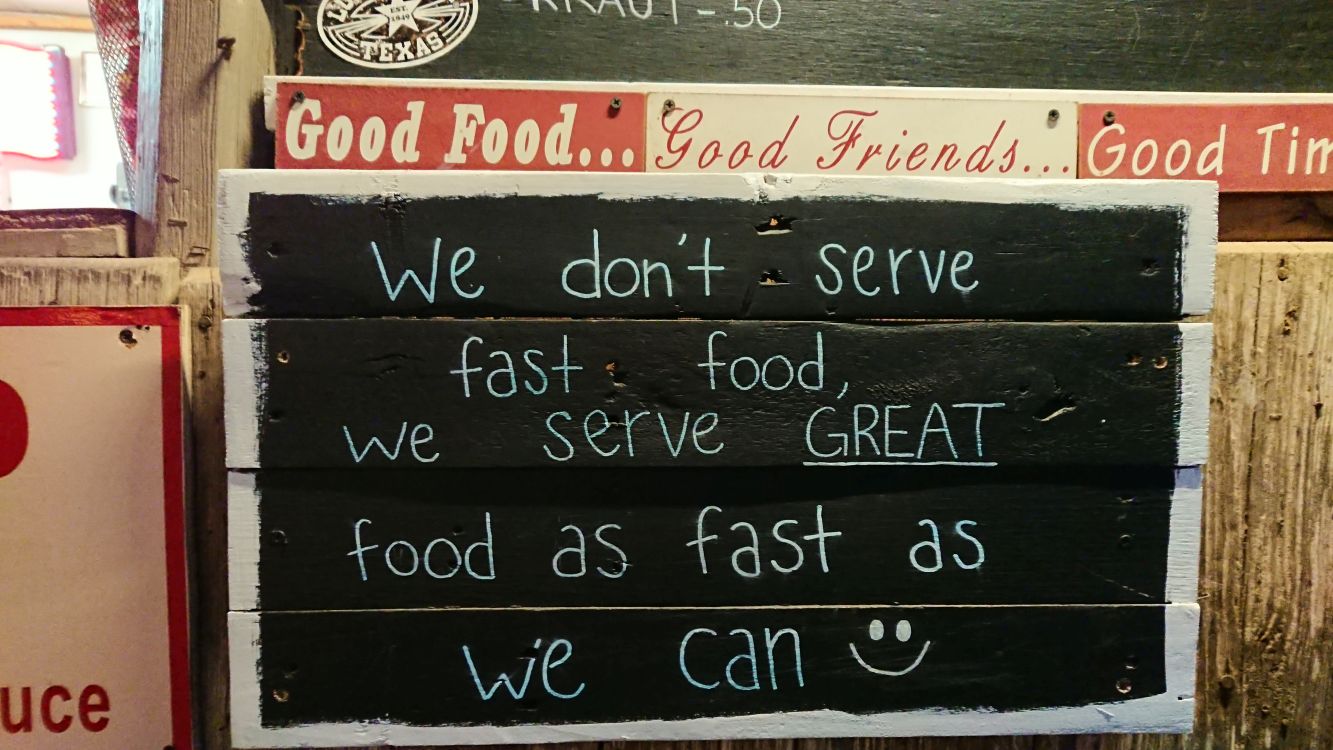 - KRAUT - .50
EST.
1849
TEXAS
Good Food... Good Friends... Good Tim
We don't serve
fast food,
we serve GREAT
food as fast as
we can
uce